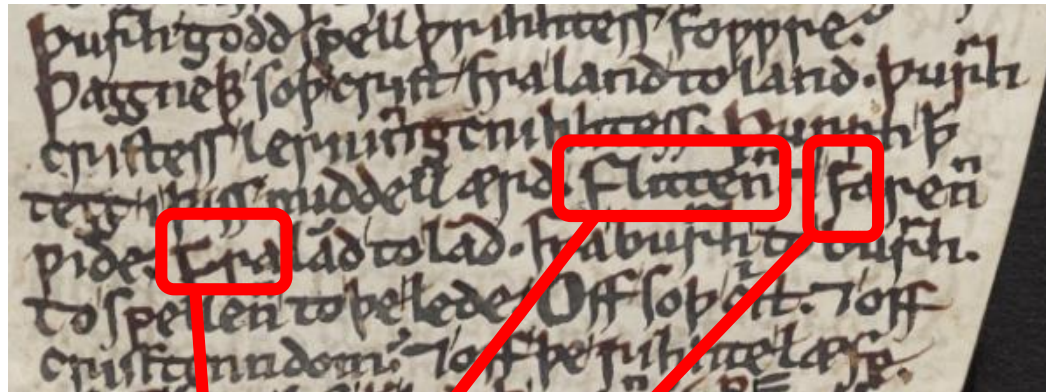 þurrh godd spell ƿrihhtess foƿƿre.
Ƿaȝȝneþþ soþ crist fra land to land. þurrh
cristess lerninngcnihhtess. þurrh þ
teȝȝ i þiss middell ærd. Flittenn ⁊ farenn
ƿide. Fra lād to lād. fra burrh to burrh.
To spellenn to þe lede. Off soþ crist. ⁊ off
cristenndom. ⁊ off þe rihhte læfe.